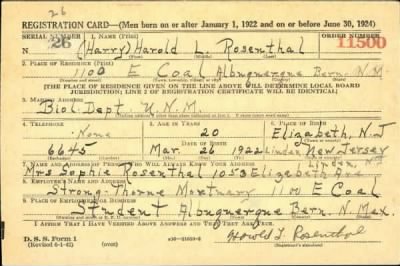 26
REGISTRATION CARD—(Men born on or after January 1, 1922 and on or before June 30, 1924)
SERIAL NUMBER 1. NAME (Print) ORDER NUMBER
26 (Harry) Harold L. Rosenthal 11500
2. PLACE OF RESIDENCE (Print)
1100 E Coal Albuquerque Bern. N.M.
[THE PLACE OF RESIDENCE GIVEN ON THE LINE ABOVE WILL DETERMINE LOCAL BOARD
JURISDICTION; LINE 2 OF REGISTRATION CERTIFICATE WILL BE IDENTICAL]
3. MAILING ADDRESS
Biol. Dept. U.N.M.
4. TELEPHONE 5. AGE IN YEARS 6. PLACE OF BIRTH
None 20 Elizabeth, N.J
DATE OF BIRTH
6645 Mar. 26 1922 Linden New Jersey
7. NAME AND ADDRESS OF PERSON WHO WILL ALWAYS KNOW YOUR ADDRESS Linden, N.J.
Mrs Sophie Rosenthal 1053 Elizabeth Ave
8. EMPLOYER'S NAME AND ADDRESS
Strong-Thorne Mortuary 1100 E Coal
9. PLACE OF EMPLOYMENT OR BUSINESS
Student Albuquerque Bern. N. Mex.
I AFFIRM THAT I HAVE VERIFIED ABOVE ANSWERS AND THAT THEY ARE TRUE.
D. S. S. Form 1
(Revised 6-1-42) Harold L. Rosenthal
(Registrant's signature)